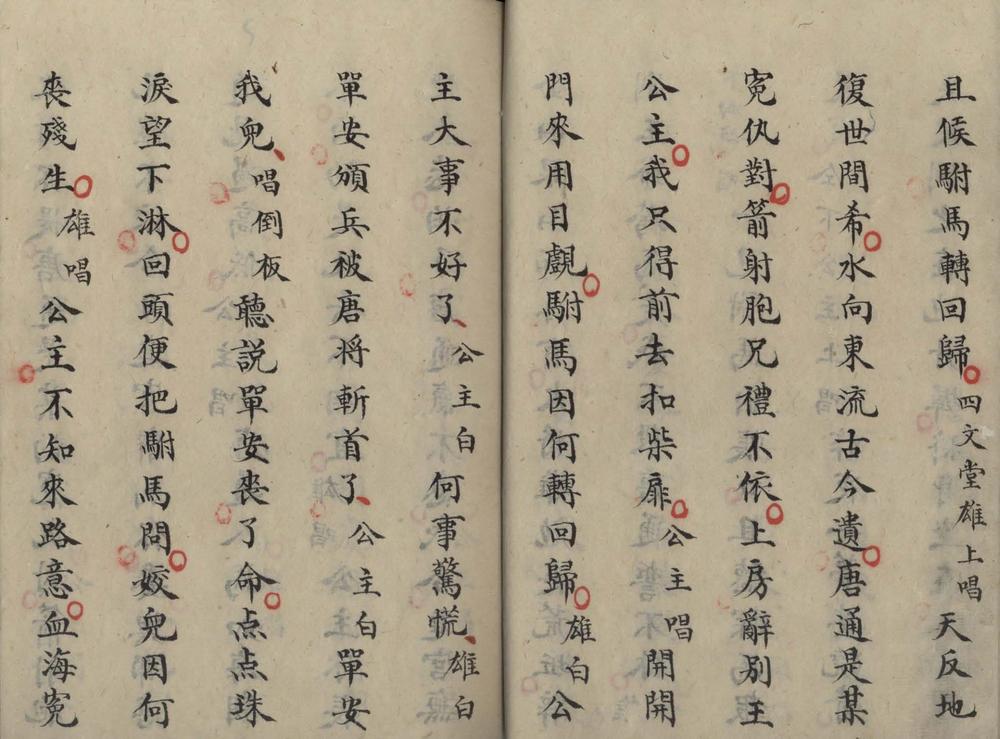 且候駙馬轉回歸四文堂雄上唱天反地
復世間希水向東流古今遺唐通是某
寃仇對箭射胞兄禮不依上房辭别主
公主我只得前去扣柴扉公主唱開開
門來用目觀駙馬因何轉回歸雄白公
主大事不好了公主白何事驚慌雄白
單安頒兵被唐将斬首了公主白單安
我兒唱倒板聽説單安喪了命点点珠
淚望下淋回頭便把駙馬問姣兒因何
喪殘生雄唱公主不知來路意血海寃